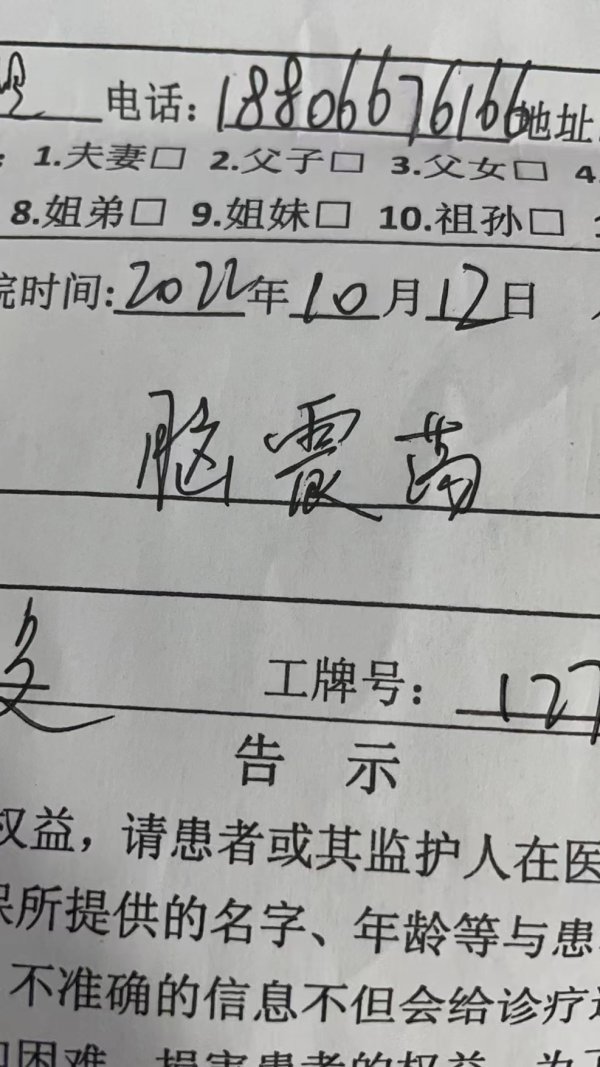 电话:18806676166地址
1.夫妻□ 2.父子□ 3.父女□ 4.
8.姐弟□ 9.姐妹□ 10.祖孙□
院时间:2022年10月12日
脑震荡
工牌号: 127
告 示
权益，请患者或其监护人在医
保所提供的名字、年龄等与患
不准确的信息不但会给诊疗
困难，损害患者的权益。为了